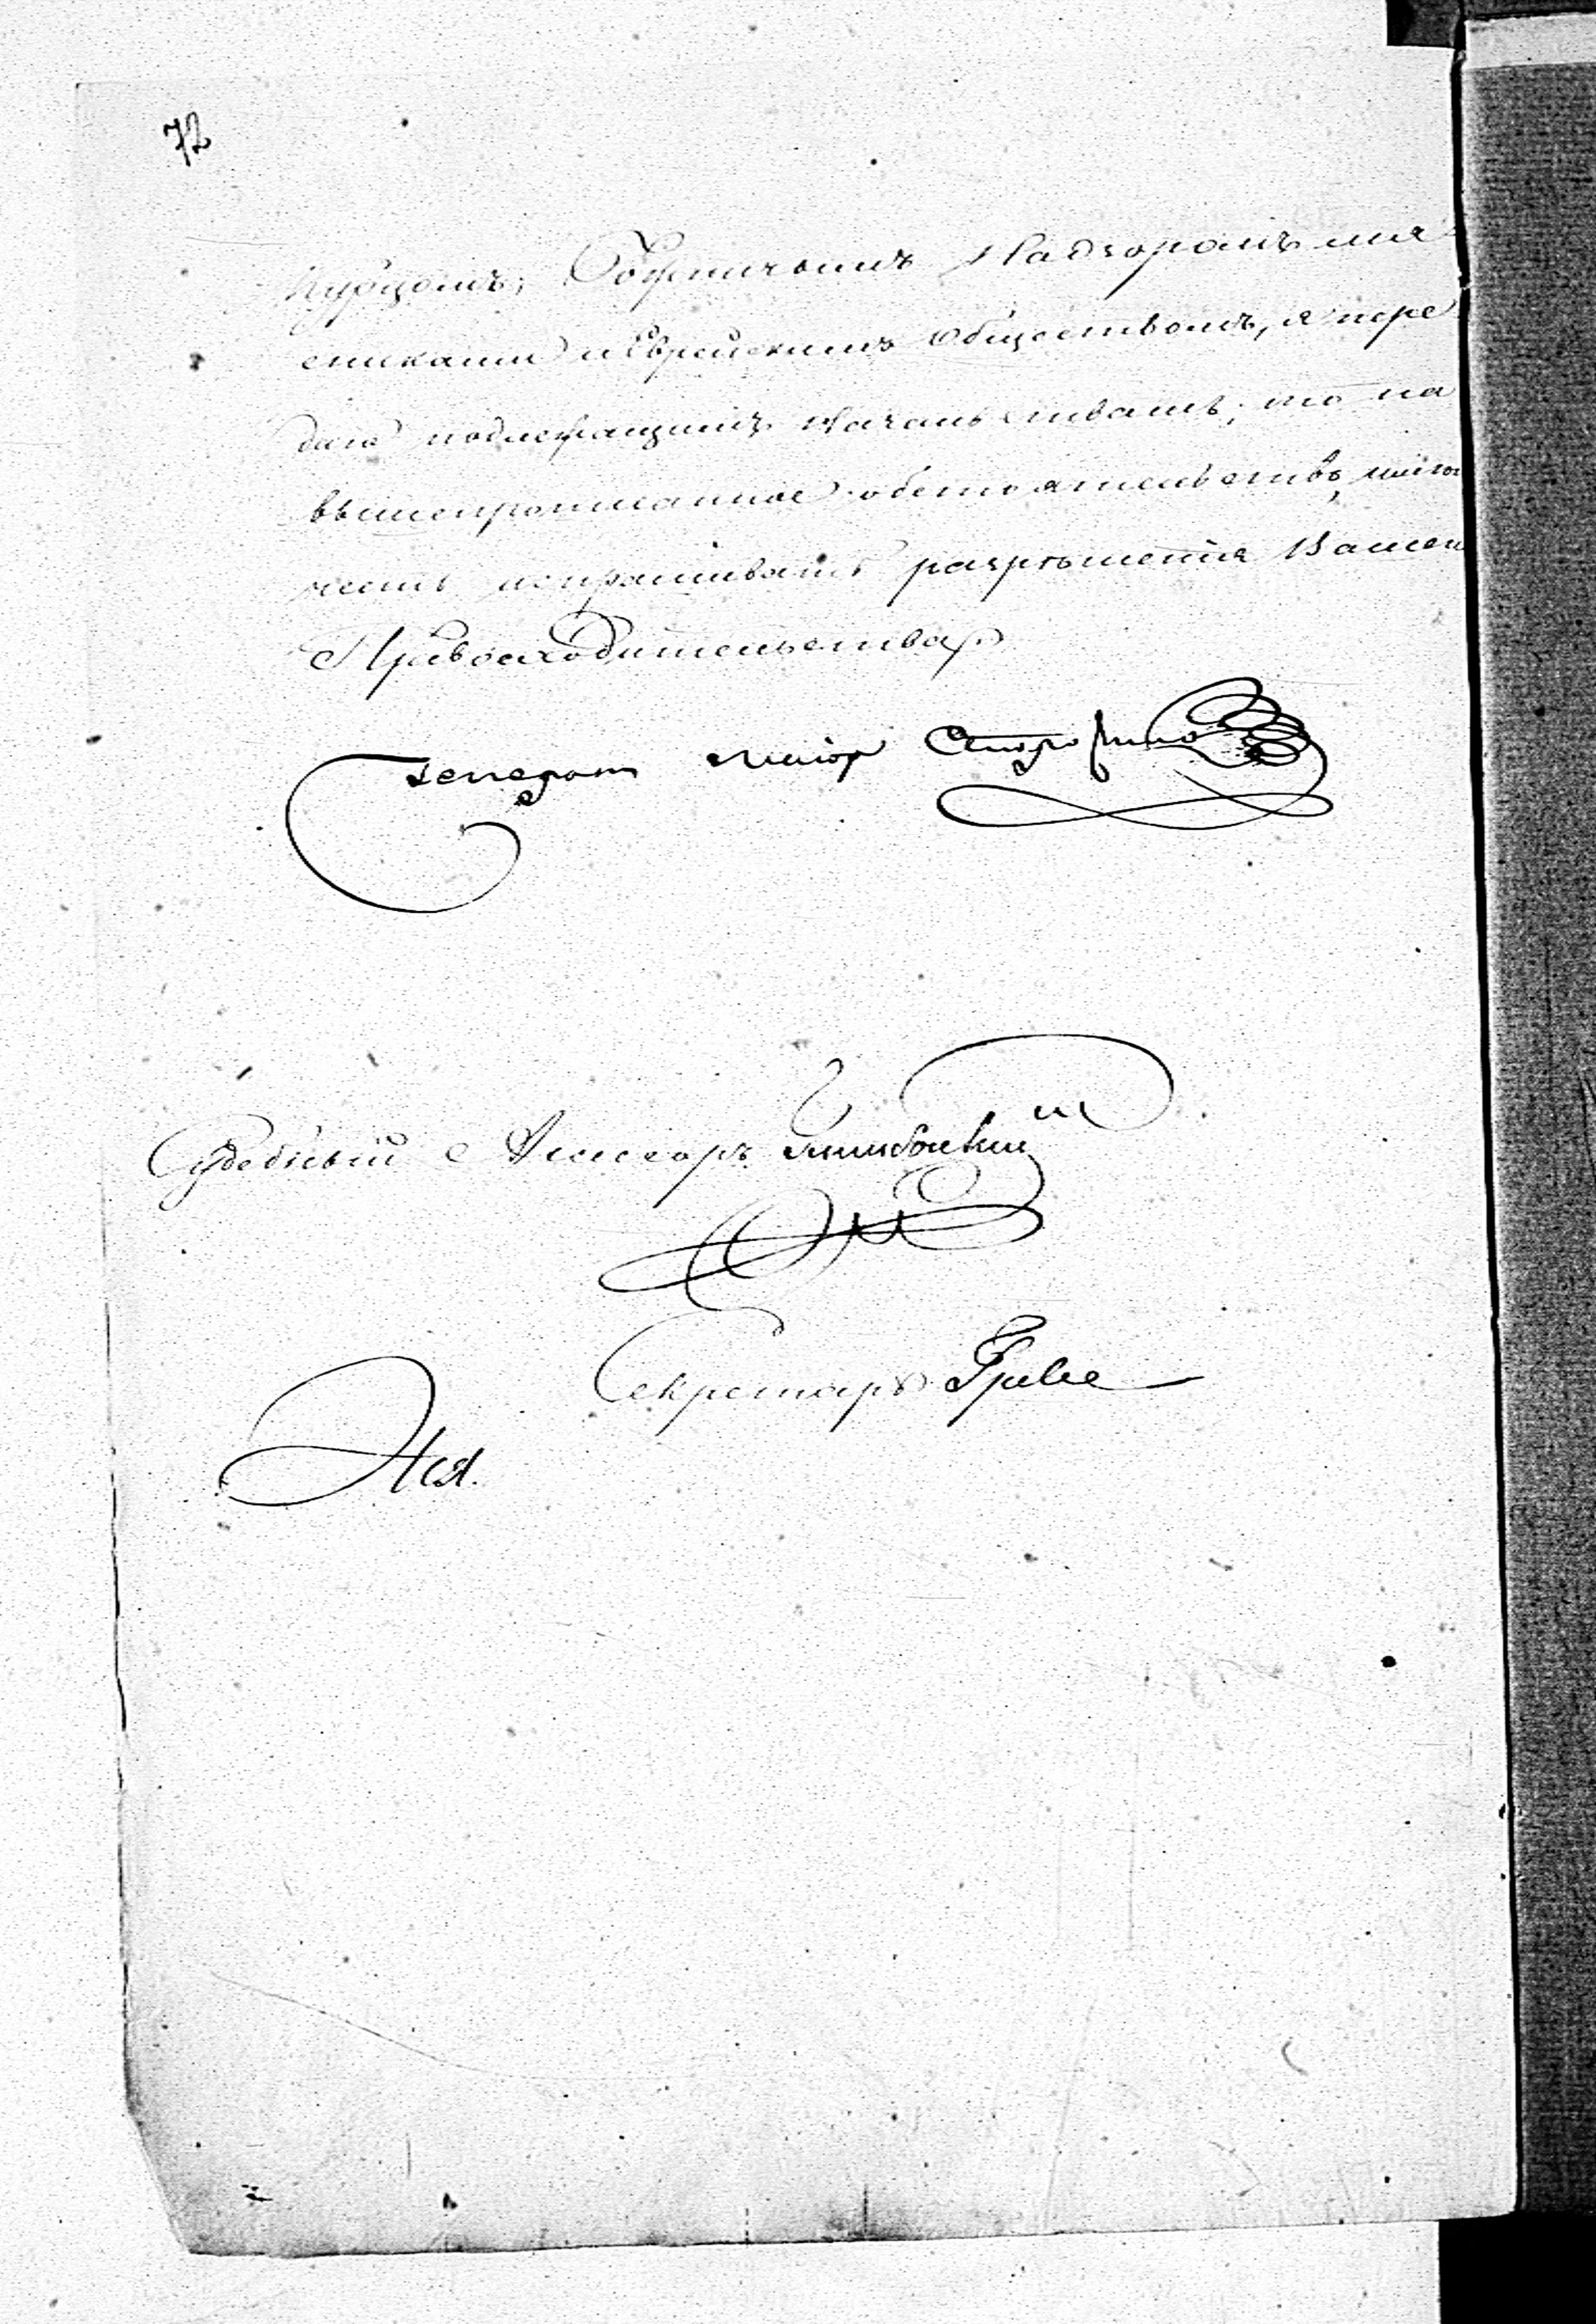 72
Курцомъ, Божничнымъ Надзоромъ мя-
сниками и Еврейскимъ Обществомъ, я пере
даю подлежащимъ Начальствамъ; то на
вышепрописанное обстоятельство имѣю
честь испрашивать разрѣшенія Вашего
Превосходительства
Генералъ маіоръ
Судебный Ассесоръ
Секретарь